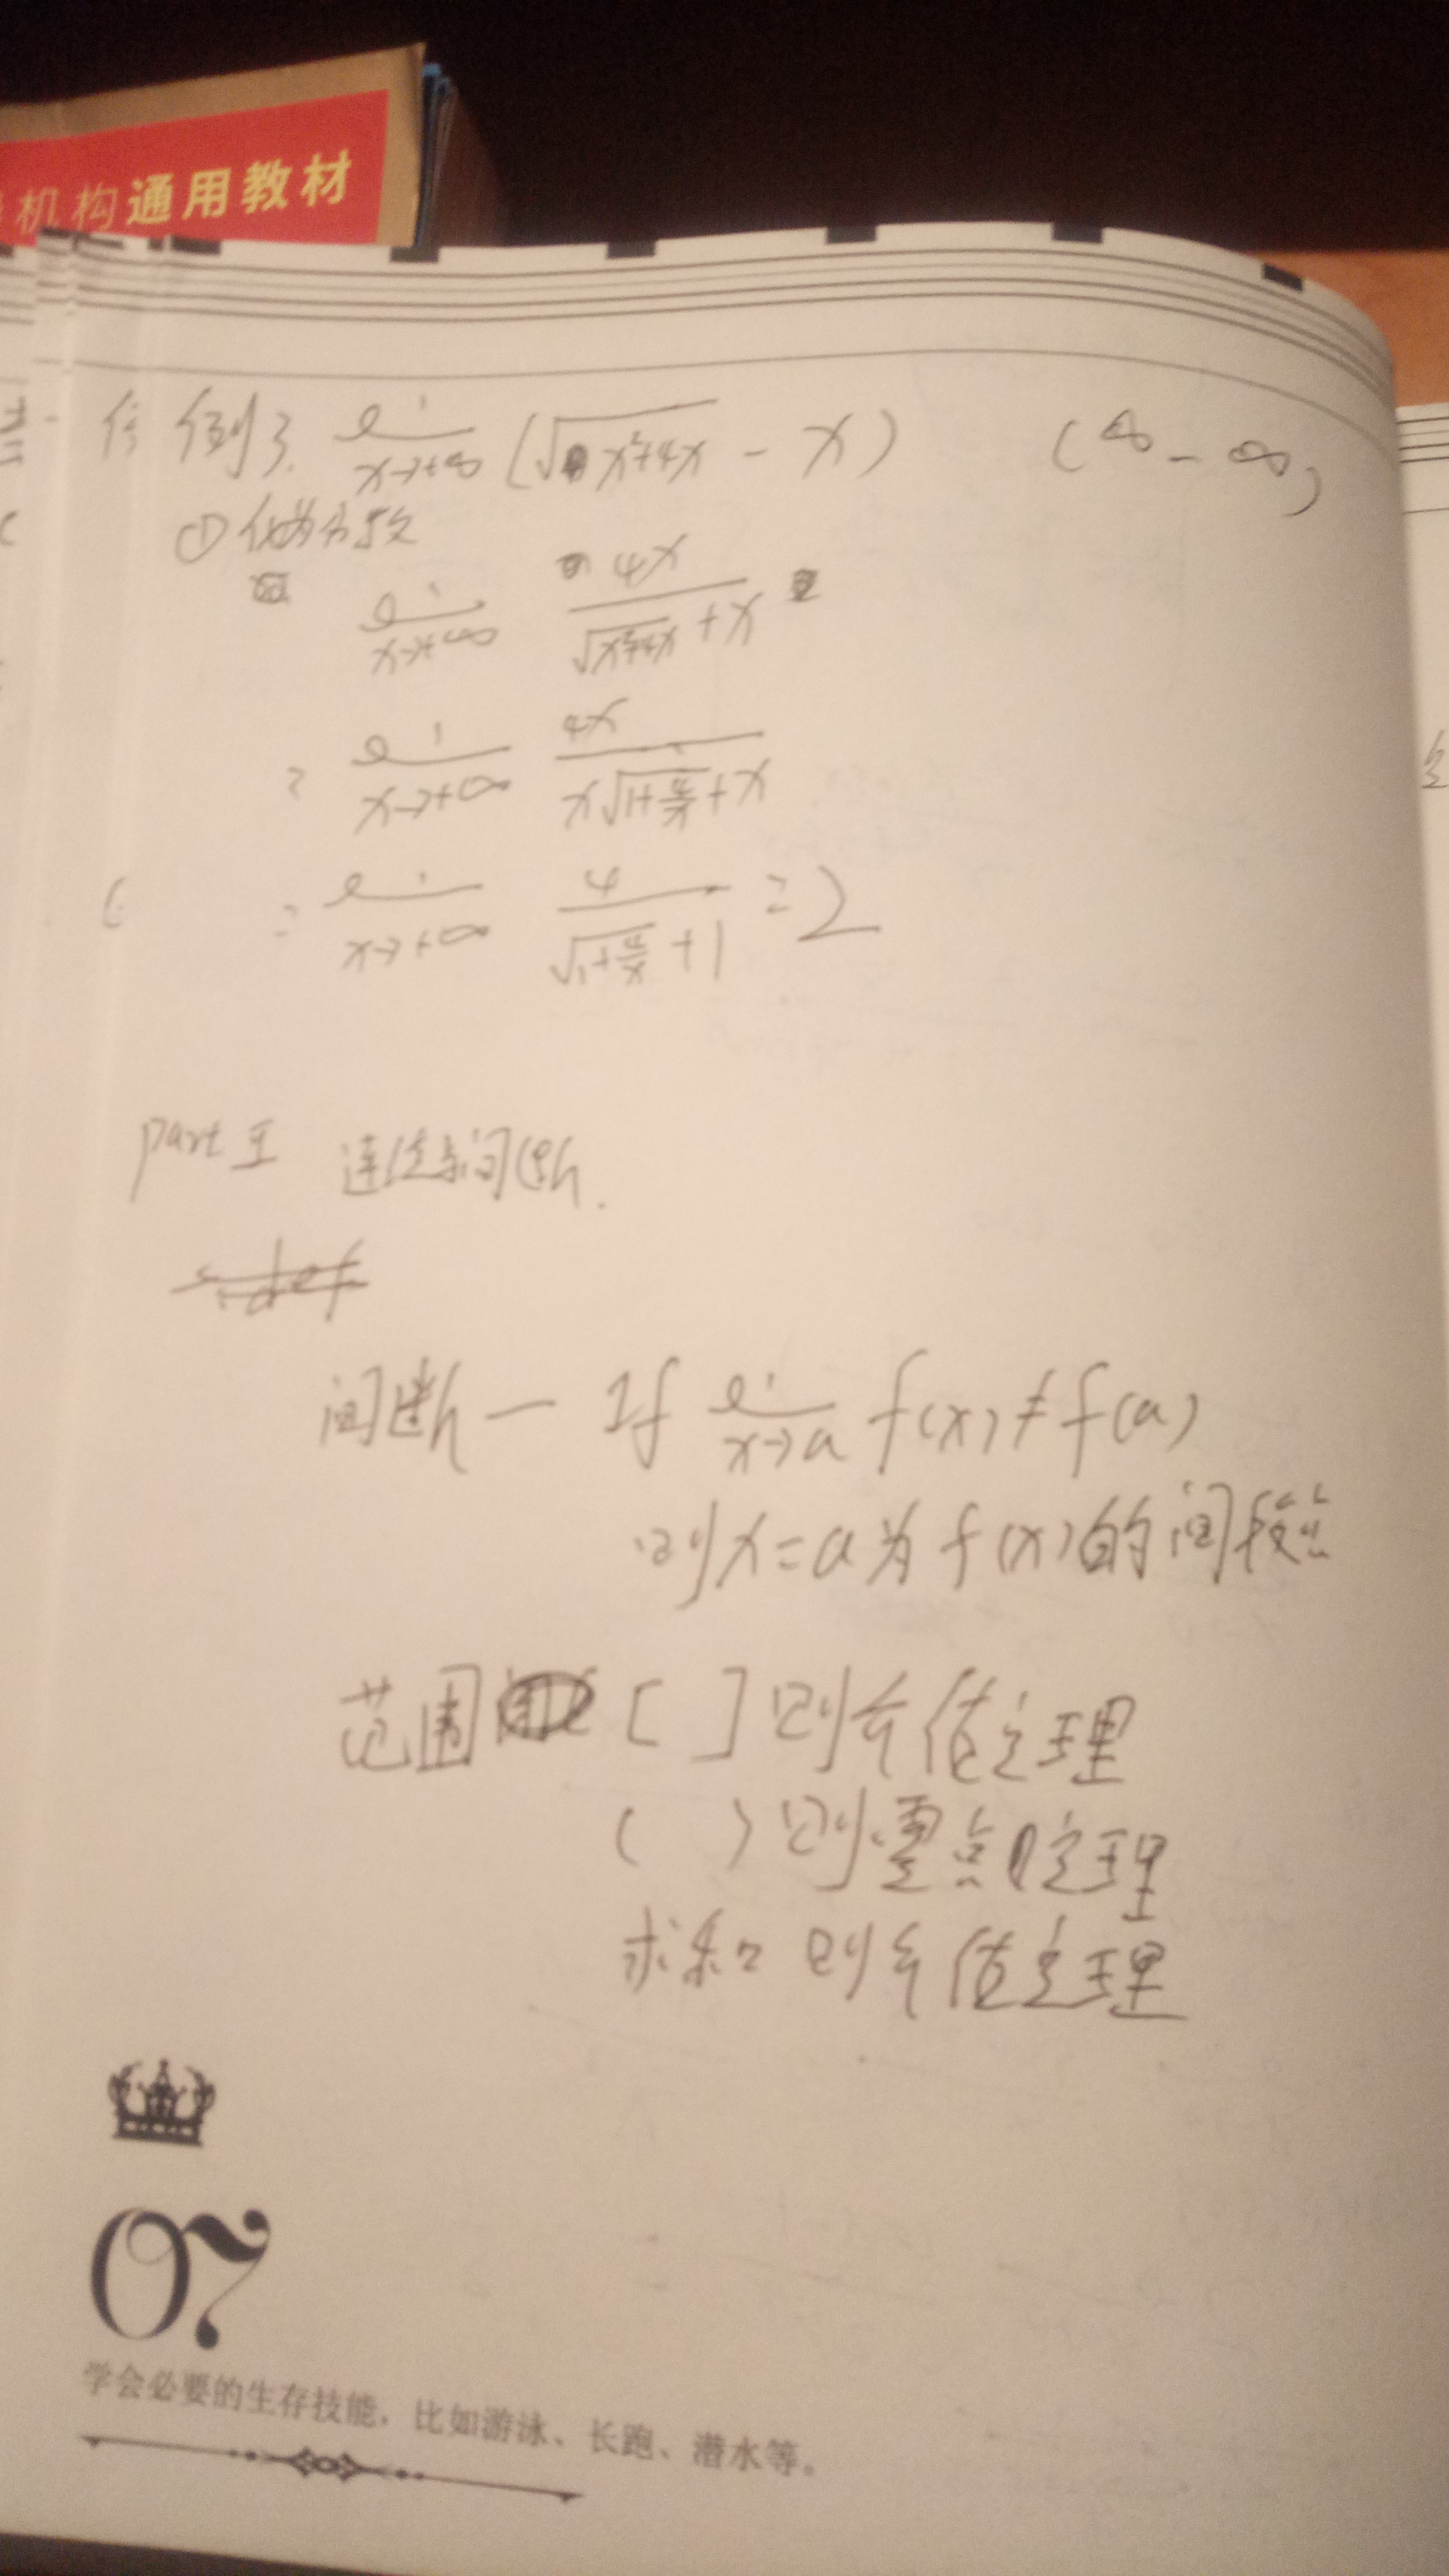 机构通用教材
例3. lim x→+∞ (√x²+4x - x) (∞-∞)
① 化为分数
lim x→+∞ 4x / √x²+4x + x
= lim x→+∞ 4x / x√1+4/x + x
= lim x→+∞ 4 / √1+4/x + 1 = 2
part II 连续与间断.
间断一 If lim x→a f(x)≠f(a)
则x=a为f(x)的间段点
范围 [ ] 则介值定理
( ) 则零点定理
求和 则介值定理
07
学会必要的生存技能，比如游泳、长跑、潜水等。